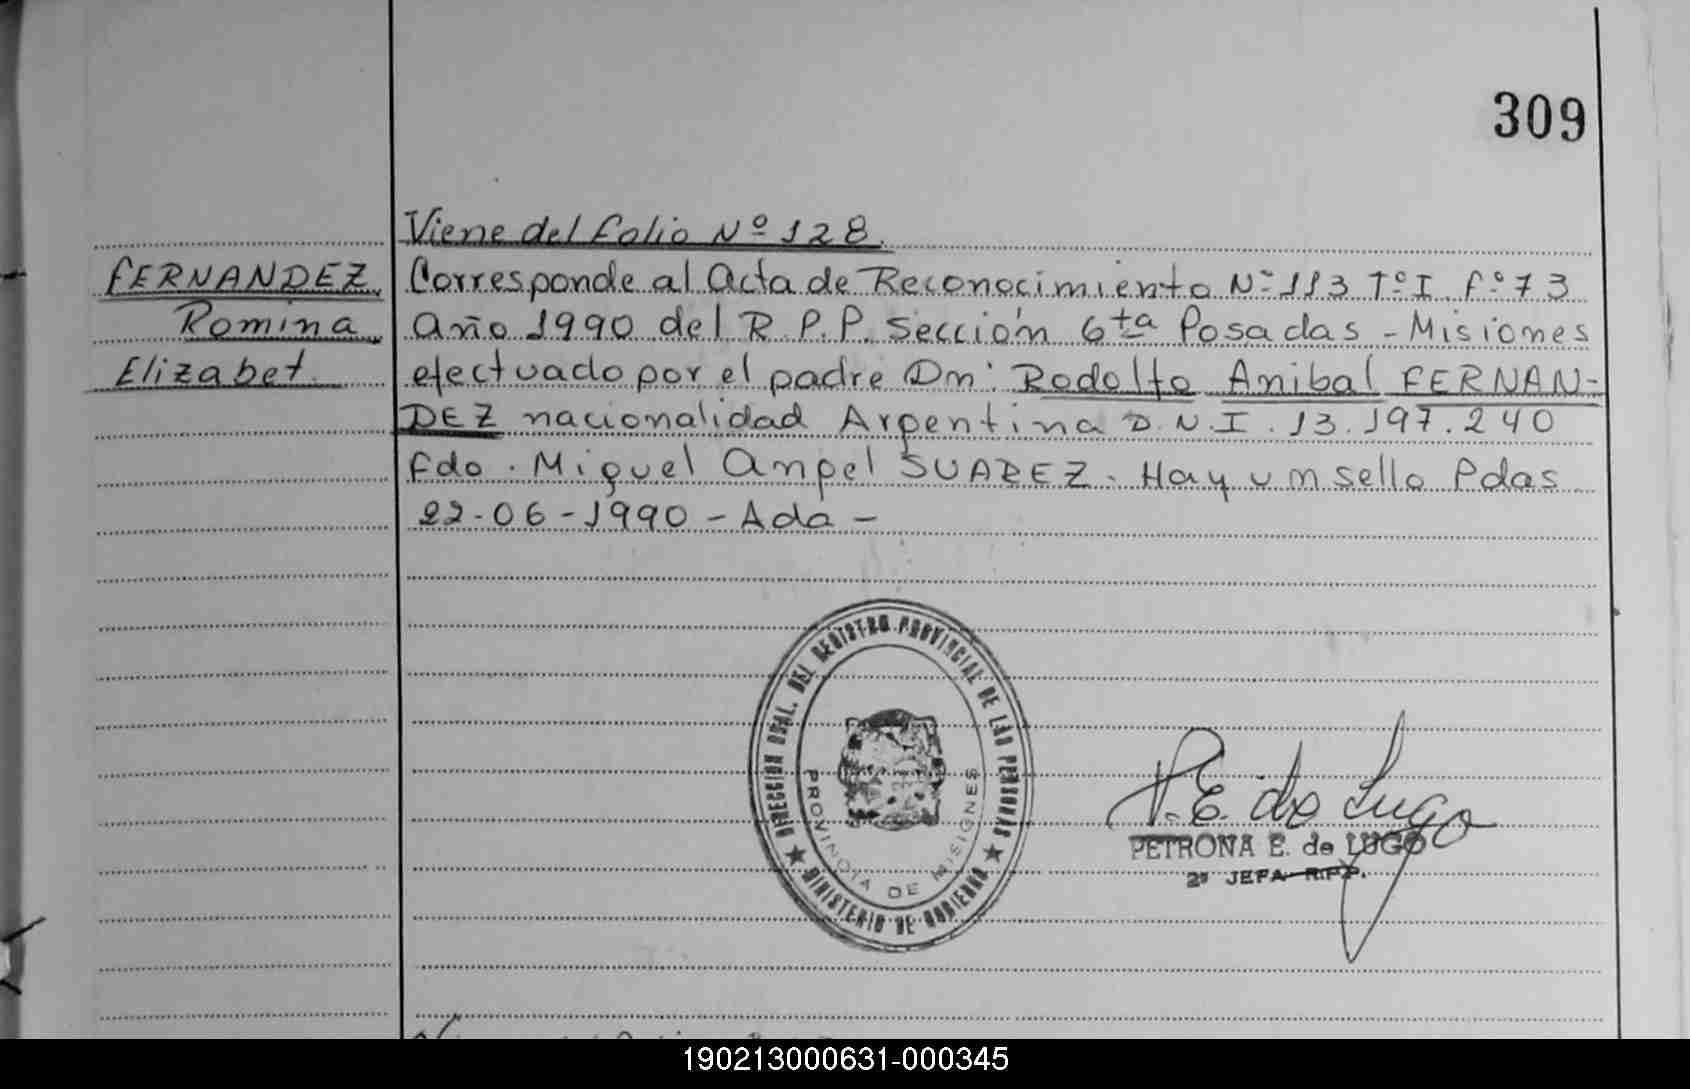 309
Viene del folio Nº 128.
FERNANDEZ,
Romina
Elizabet.
Corresponde al Acta de Reconocimiento Nº 113 Tº I Fº 73
Año 1990 del R.P.P. Sección 6ta Posadas - Misiones
efectuado por el padre Dn: Rodolfo Anibal FERNAN-
DEZ nacionalidad Argentina D.N.I. 13.197.240
Fdo. Miguel Angel SUAREZ. Hay un sello Pdas
22-06-1990 - Ada -
DIRECCION GRAL. DEL REGISTRO PROVINCIAL DE LAS PERSONAS
PROVINCIA DE MISIONES
MINISTERIO DE GOBIERNO
P. E. de Lugo
PETRONA E. de LUGO
2ª JEFA R.P.P.
190213000631-000345